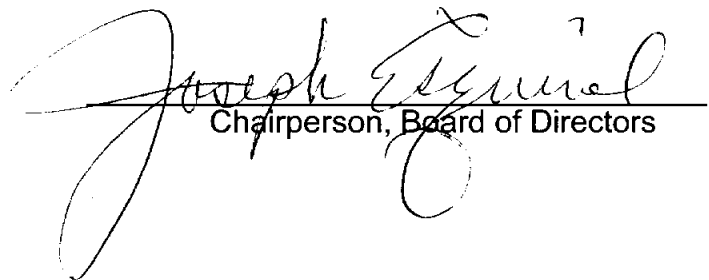 Joseph Esquivel
Chairperson, Board of Directors